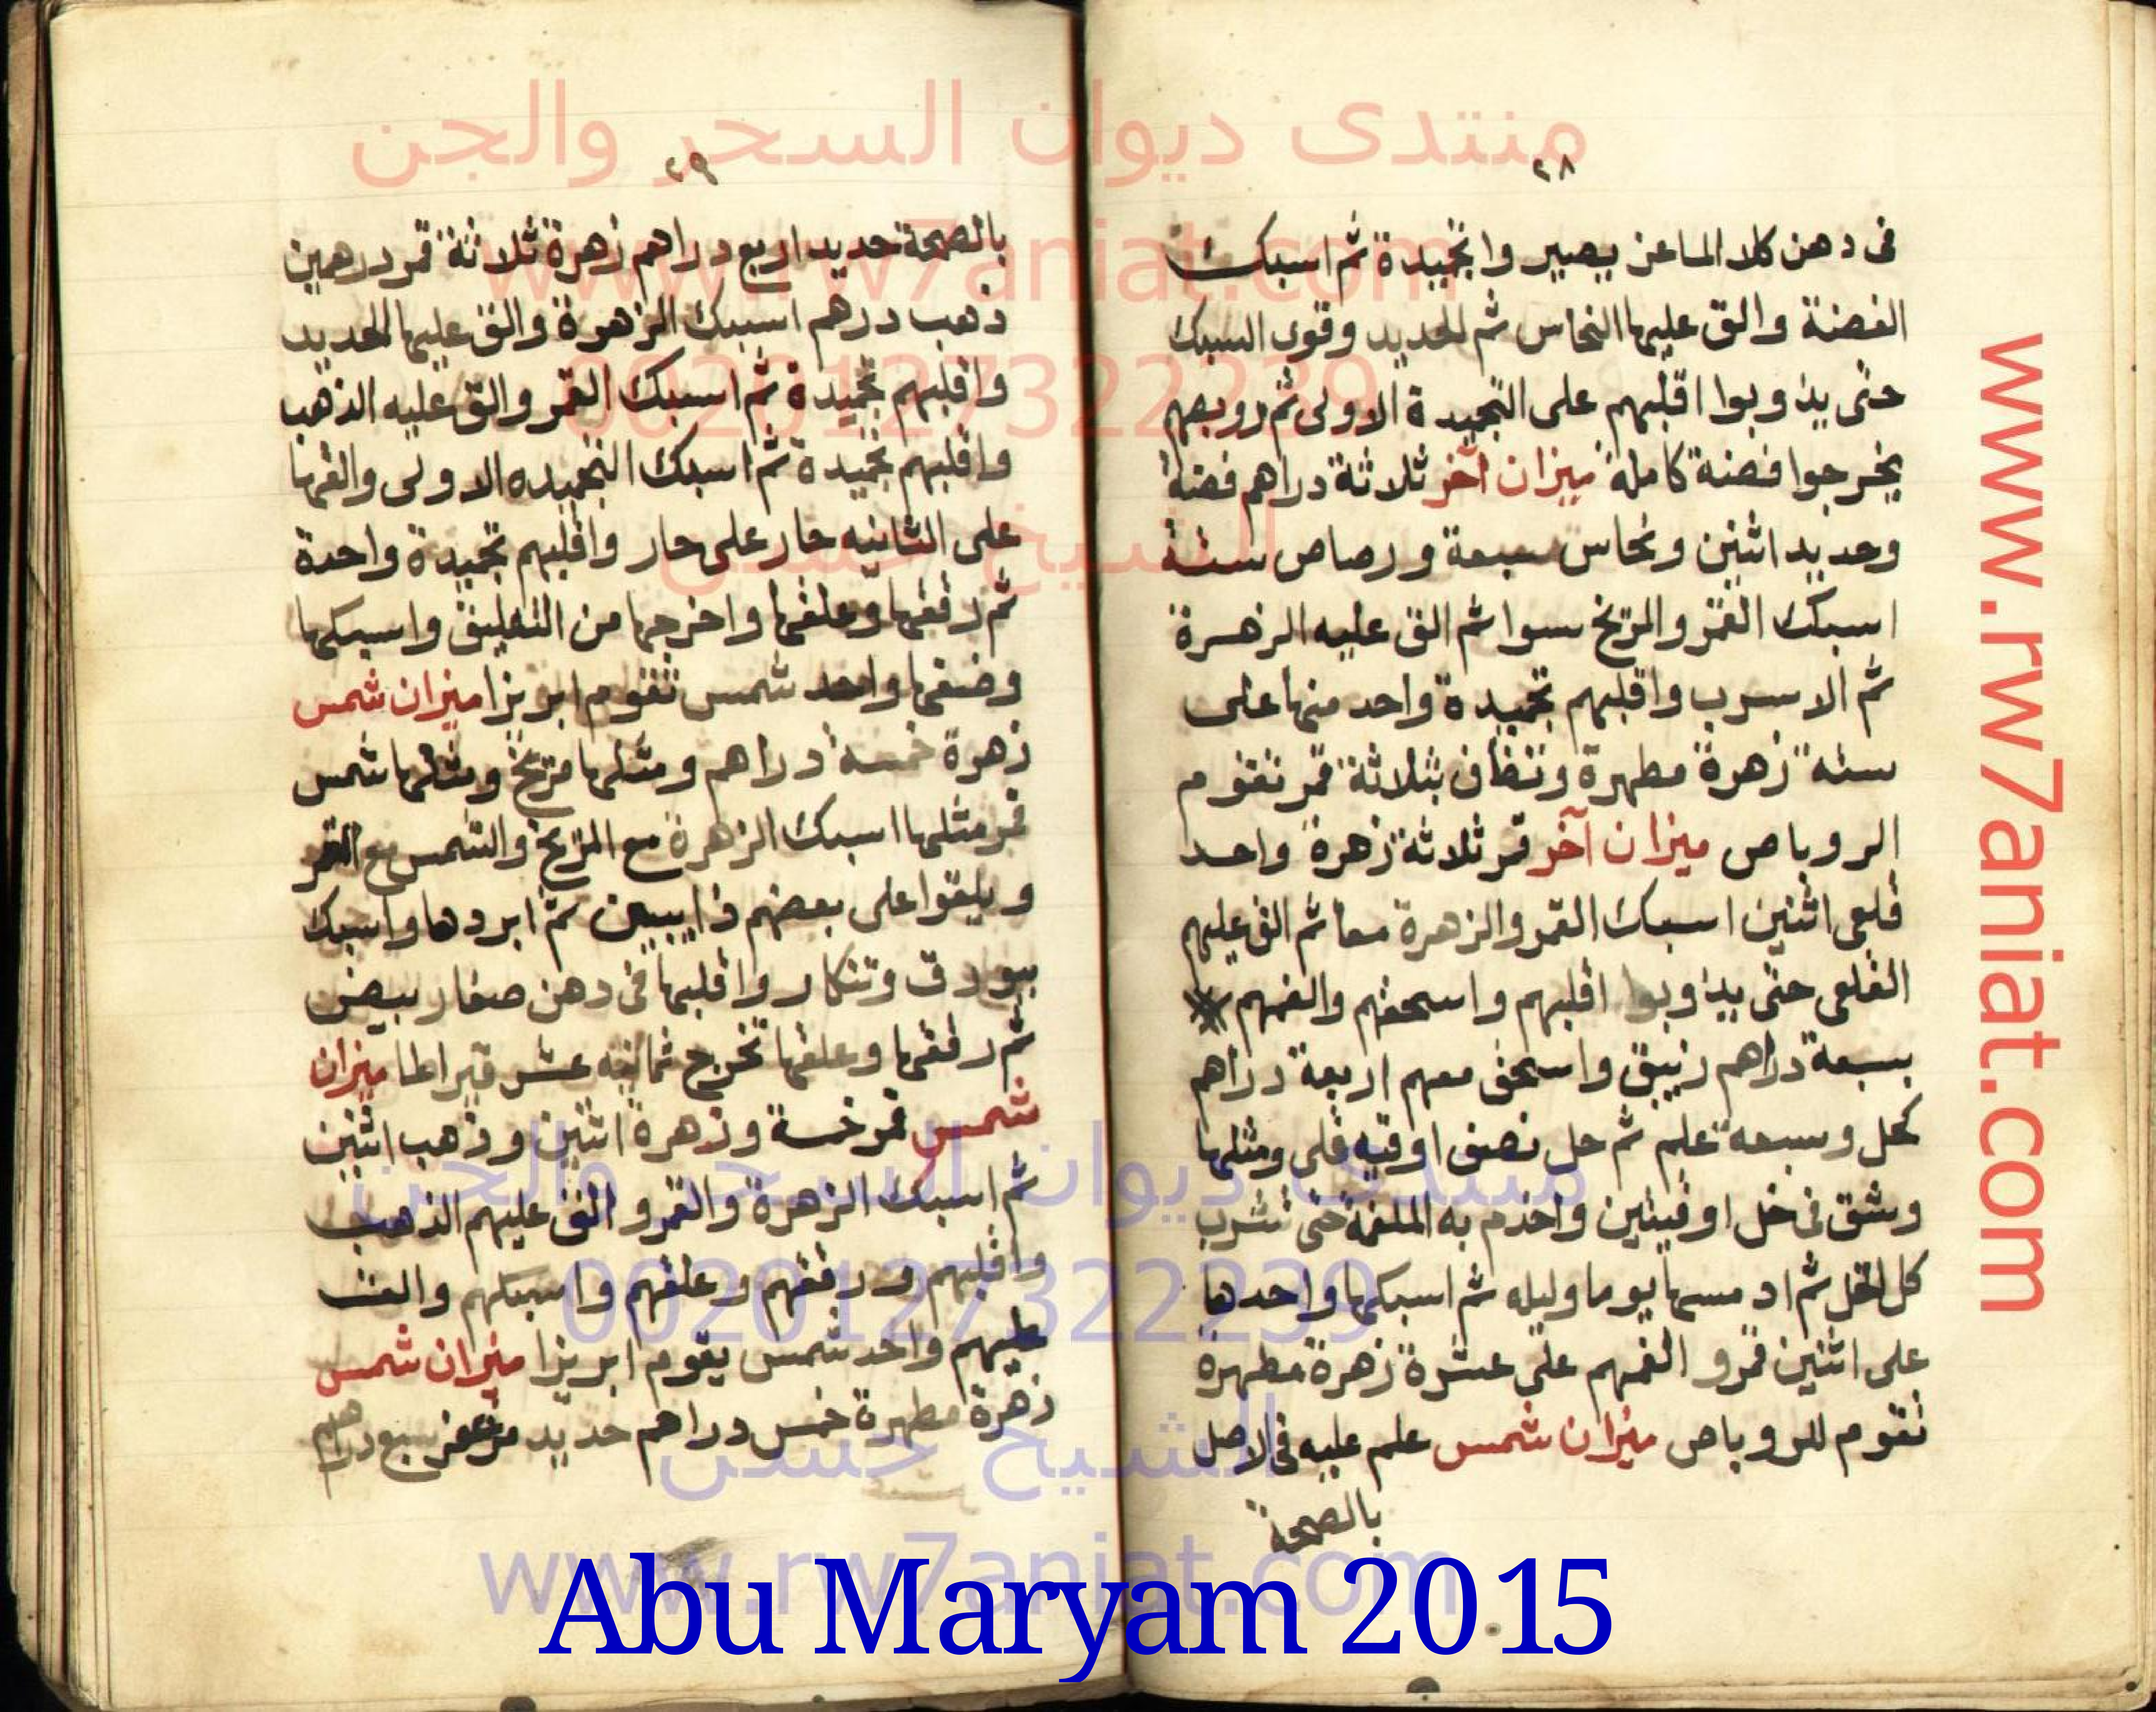 منتدى ديوان السحر والجن
www.rw7aniat.com
00201273222239
الشيخ حسن
٢٨
فى دهن كلا الماعز يصير وا تجميدة ثم اسبك
الفضة والق عليها النحاس ثم الحديد وقوى السبك
حتى يذوبوا اقلبهم على التجميدة الاولى ثم روبصهم
يخرجوا فضة كاملة ميزان آخر ثلاثة دراهم فضة
وحديد اثنين ونحاس سبعة ورصاص ستة
اسبك القمر والمريخ سوا ثم الق عليه الزهرة
ثم الاسرب واقلبهم تجميدة واحد منها على
ستة زهرة مطهرة وتنظاف بثلاثة قمر تقوم
الروباص ميزان آخر قمر ثلاثة زهرة واحد
قلعى اثنين اسبك القمر والزهرة معا ثم الق عليهم
القلعى حتى يذوبوا اقلبهم واسحقهم والغمهم
بسبعة دراهم زيبق واسحق معهم اربعة دراهم
كحل وسبعة علم ثم حل نصف اوقيه قلى ومثلها
وشق فى خل اوقيتين واخدم به الملغمة حتى تشرب
كل الخل ثم ادمسها يوما وليله ثم اسبكها واحدها
على اثنين قمر و القمهم على عشرة زهرة مطهرة
تقوم للروباص ميزان شمس علم عليه فى الاصل
بالصحة
٢٩
بالصحة حديد اربع دراهم زهرة ثلاثة قمر درهمين
ذهب درهم اسبك الزهرة والق عليها الحديد
واقلبهم تجميدة ثم اسبك القمر والق عليه الذهب
واقلبهم تجميدة ثم اسبك التجميده الاولى والقها
على الثانيه حار على حار واقلبهم تجميدة واحدة
ثم رققها وعلقها واخرجها من التعليق واسبكها
وضفها واحد شمس تقوم ابريزا ميزان شمس
زهرة خمسة دراهم ومثلها مريخ ومثلها شمس
قمر مثلها اسبك الزهرة مع المريخ والشمس مع القمر
ويلقوا على بعضهم ذايبين ثم ابردها واسبك
ببورق وتنكار واقلبها فى دهن صفار بيض
ثم رققها وعلقها تخرج ثمانيه عشر قيراطا ميزان
شمس قمر خمسة وزهرة اثنين وذهب اثنين
ثم اسبك الزهرة والقمر و الق عليهم الذهب
واقلبهم ورققهم وعلقهم واسبكهم والق
عليهم واحد شمس يقوم ابريزا ميزان شمس
زهرة مطهرة خمس دراهم حديد مزعفر سبع دراهم
منتدى ديوان السحر والجن
00201273222239
الشيخ حسن
www.rw7aniat.com
Abu Maryam 2015
www.rw7aniat.com